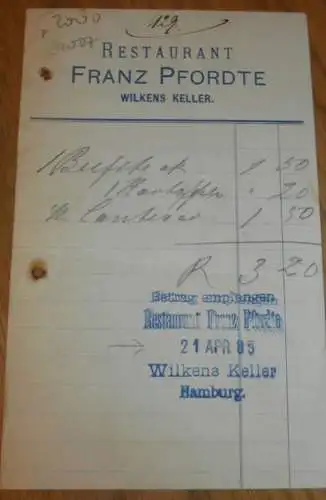 2000
129.
RESTAURANT
FRANZ PFORDTE
WILKENS KELLER.
1 Beefsteak 1 50
1 Kartoffeln " 20
1 50
R 3 20
Betrag empfangen
Restaurant Franz Pfordte
21 APR 85
Wilkens Keller
Hamburg.